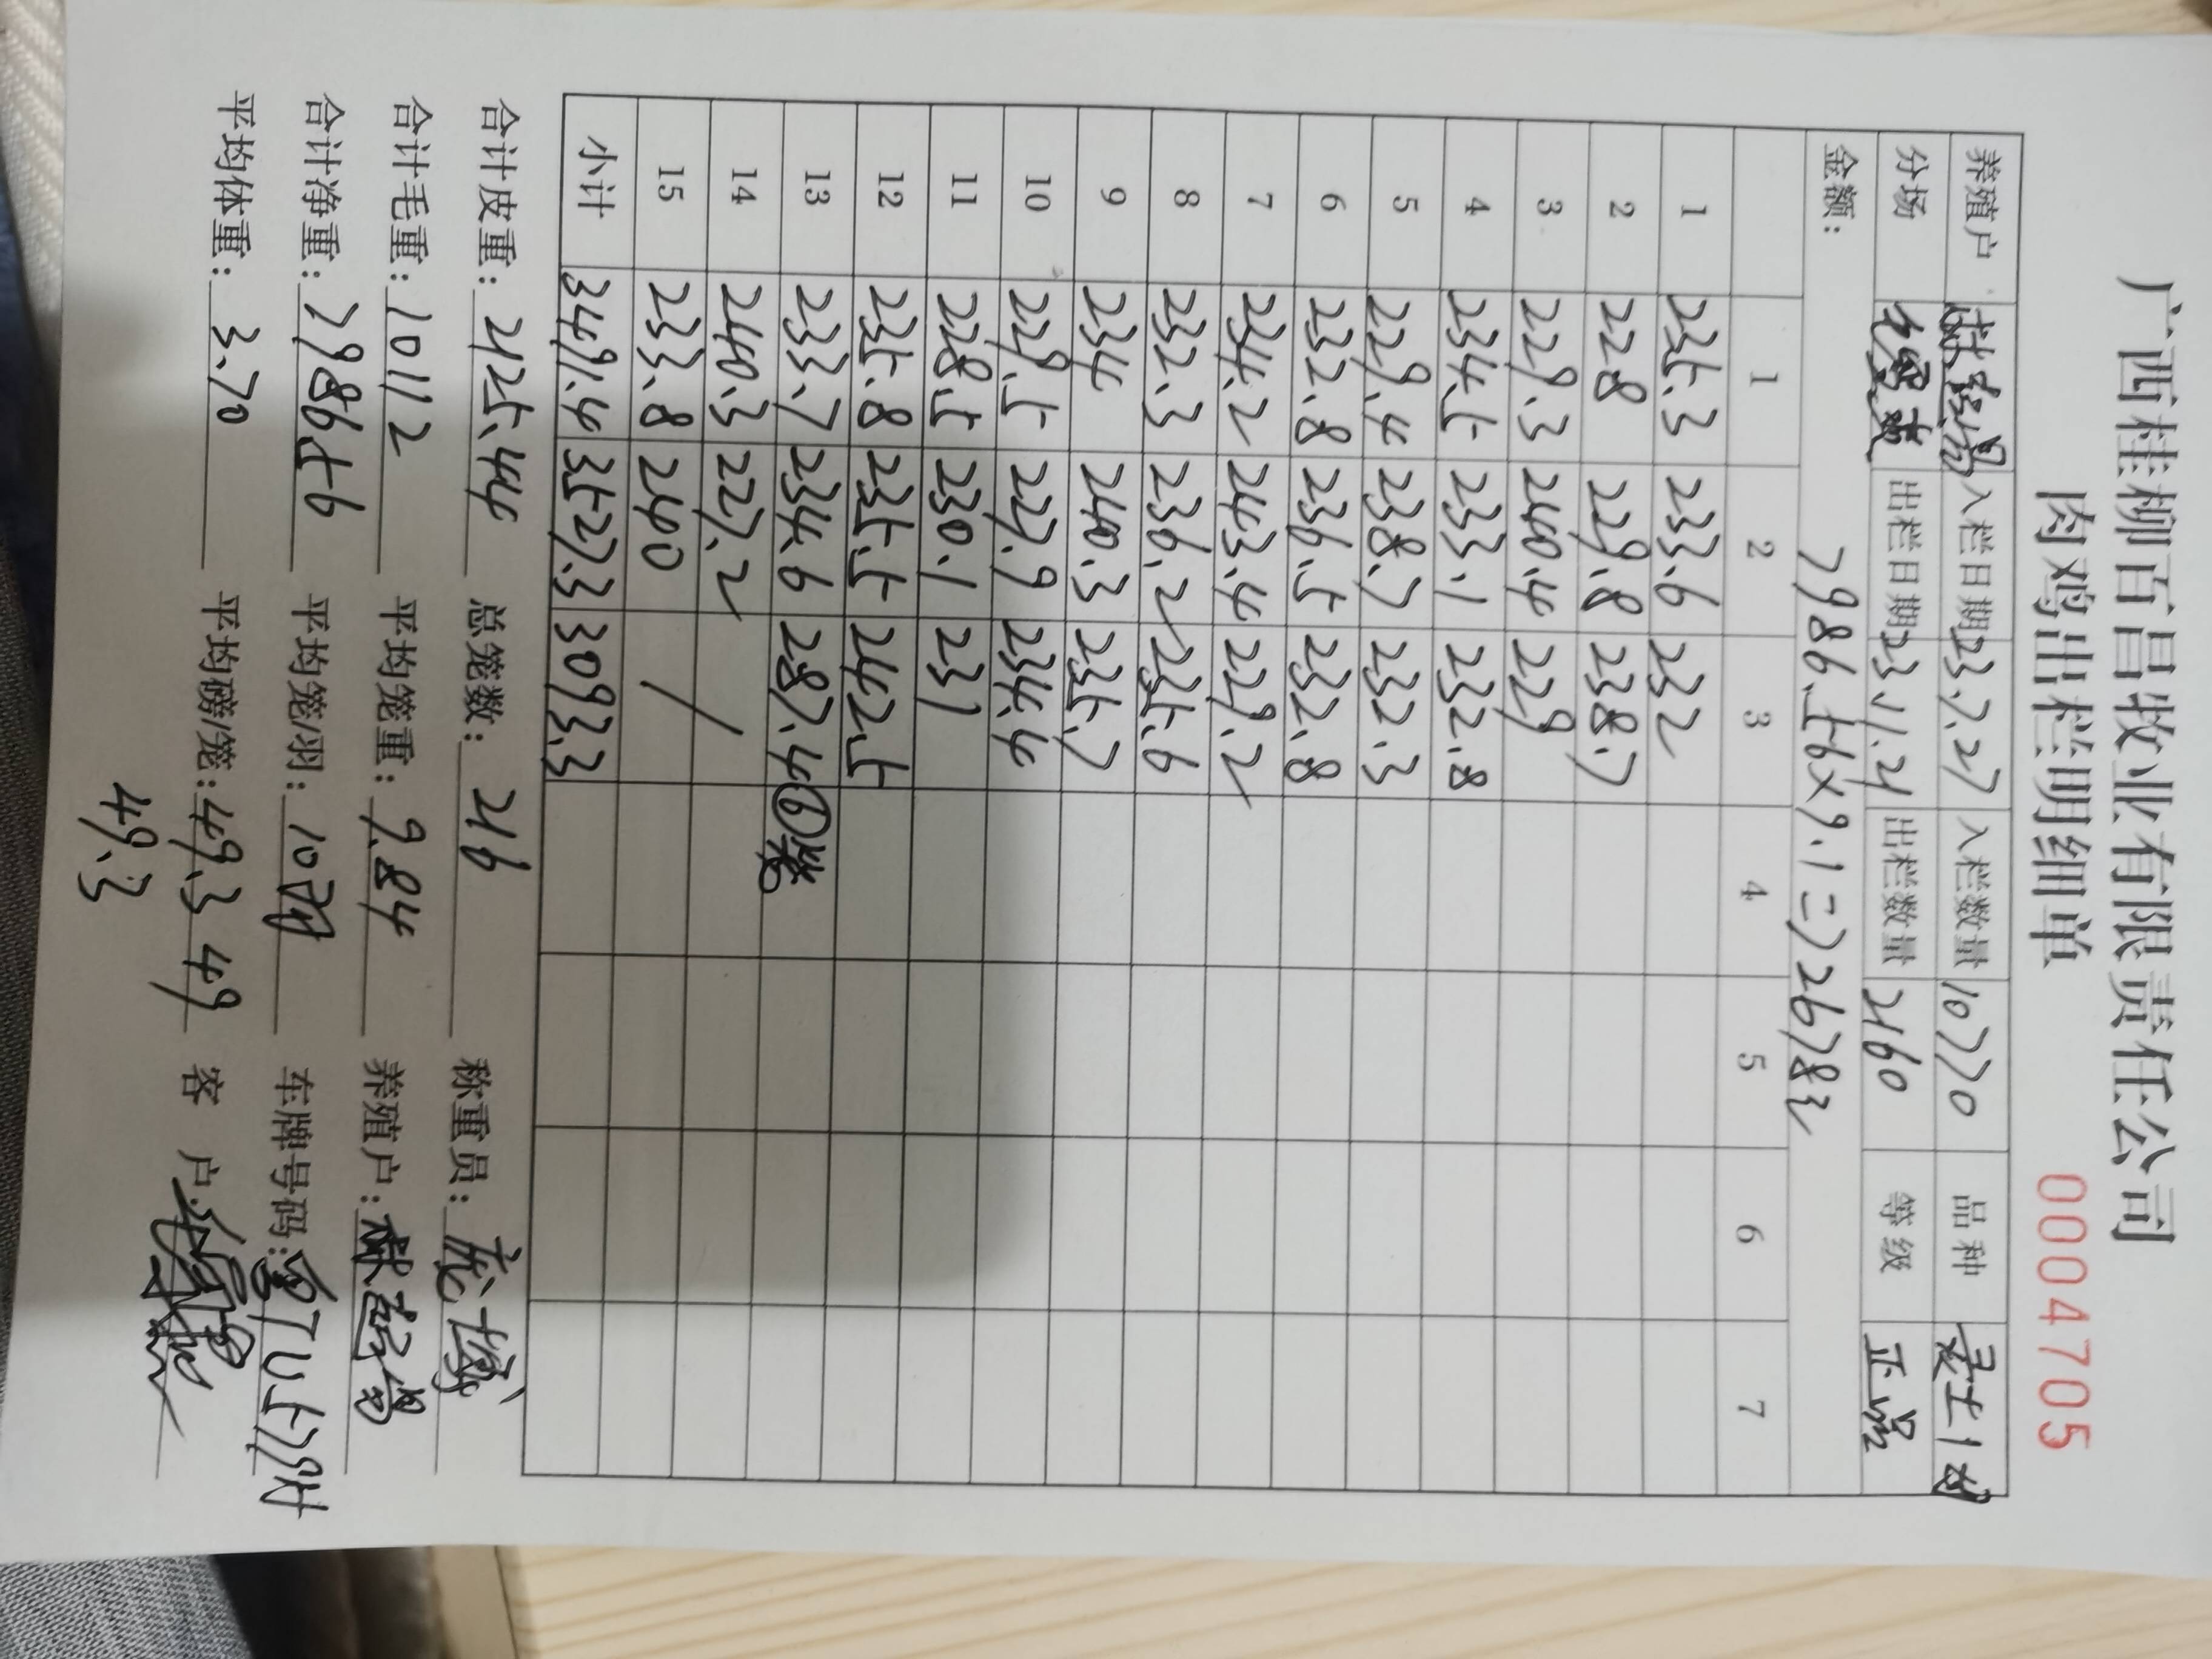 广西桂柳百昌牧业有限责任公司
肉鸡出栏明细单 0004705
养殖户 入栏日期 23.7.27 入栏数量 10770 品种
分场 出栏日期 23.11.21 出栏数量 2160 等级 正品
金额: 7986.56×9.1=72678元
1 2 3 4 5 6 7
1 235.3 233.6 232
2 228 229.8 238.7
3 229.3 240.4 229
4 234.5 233.1 232.8
5 229.4 238.7 232.3
6 232.8 236.5 232.8
7 234.2 243.4 229.2
8 232.3 236.2 235.6
9 234 240.3 235.7
10 229.5 227.9 234.4
11 228.5 230.1 231
12 235.8 235.5 242.5
13 233.7 234.6 287.4 ⑥笼
14 240.3 227.2
15 233.8 240 /
小计 3491.4 3527.3 3093.3
合计皮重: 2125.44 总笼数: 216 称重员:
合计毛重: 10112 平均笼重: 9.84 养殖户:
合计净重: 7986.56 平均笼/羽: 10羽 车牌号码:
平均体重: 3.70 平均磅/笼: 49.3 49 客 户:
49.3